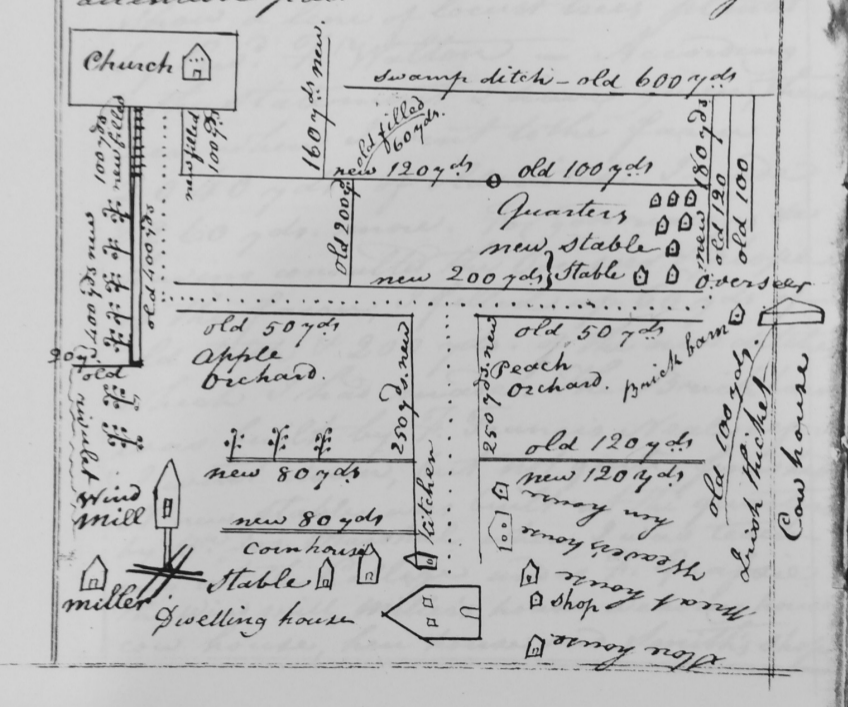 Church
swamp ditch - old 600 yds
160 yds new
old filled
60 yds.
100 yds
new filled
new filled
100 yds
new 120 yds
old 100 yds
new 180 yds
old 120
old 100
old 200 yds
Quarters
new stable
new 200 yds
Stable
Overseer
old 400 yds
20 y
old
rivulet
old 50 yds
old 50 yds
apple
Orchard.
250 yds. new
250 yds. new
Peach
Orchard.
Brick barn
old 100 yds.
Irish thicket
Cow house
new 80 yds
old 120 yds
new 120 yds
Wind
mill
new 80 yds
kitchen
hen house
Weavers house
Cornhouse
Stable
meat house
miller
shop
Dwelling house
Stone house